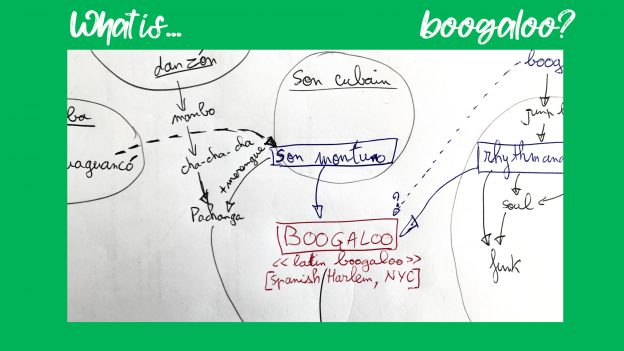 What is... boogaloo?
danzón
mambo
cha-cha-cha
+ merengue
Pachanga
ba
uaguancó
Son cubain
son montuno
?
BOOGALOO
<< latin boogaloo >>
[Spanish Harlem, NYC]
boog
jump b
rhythm and
soul
funk